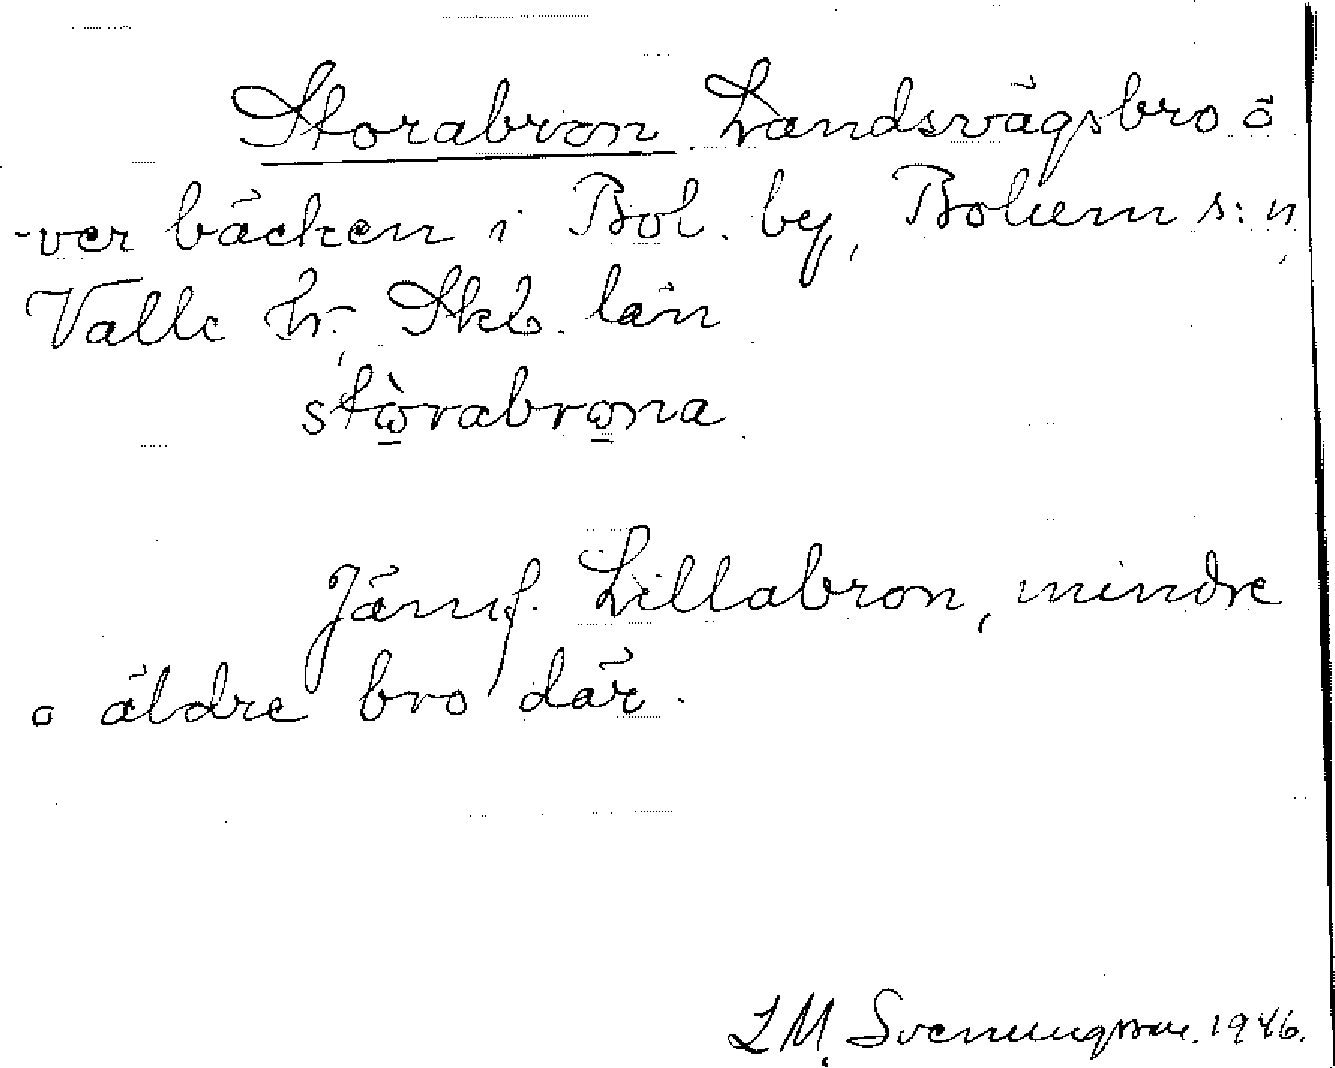 Storabron Landsvägsbro ö
-ver bäcken i Bol. by, Bolum s:n,
Valle hr, Skb. län
stὼ̲rabrω̲na
Jämf. Lillabron, mindre
o äldre bro där.
L M. Svenungsson. 1946.